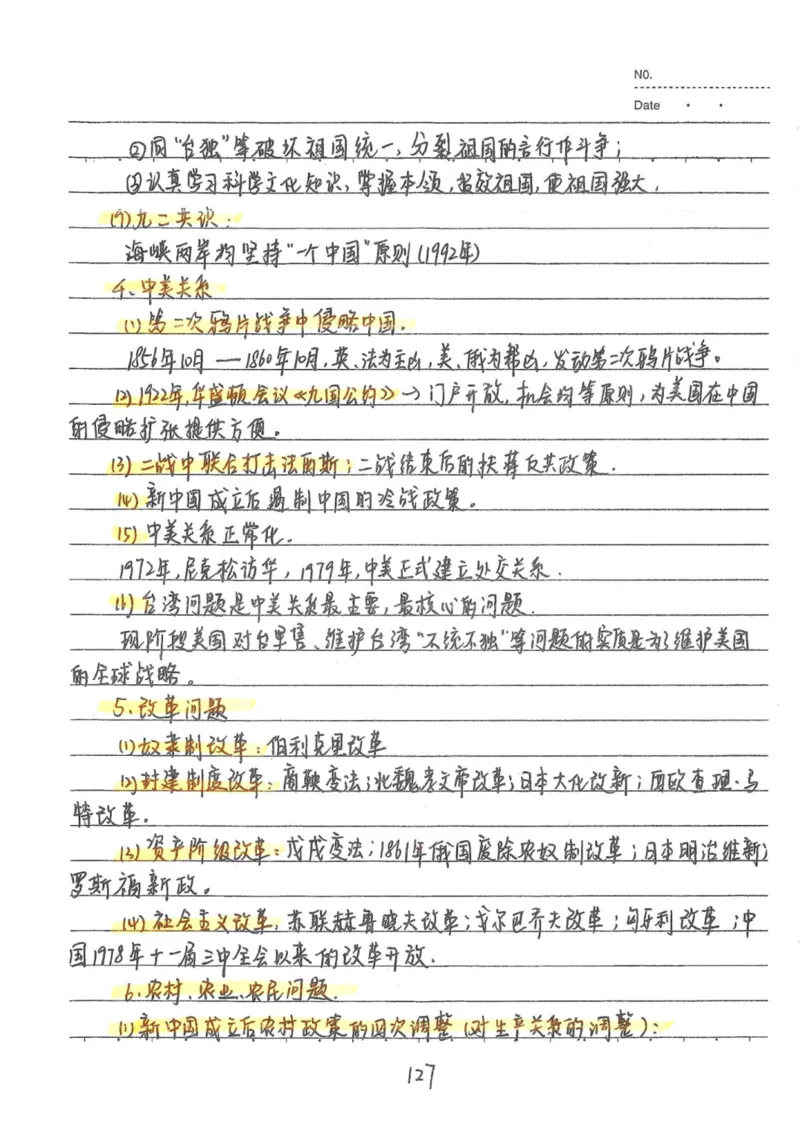 NO.
Date
②同“台独”等破坏祖国统一,分裂祖国的言行作斗争;
③认真学习科学文化知识,掌握本领,报效祖国,使祖国强大.
(7)九二共识:
海峡两岸均坚持“一个中国”原则(1992年)
4、中美关系
(1)第二次鸦片战争中侵略中国.
1856年10月—1860年10月,英、法为主凶,美、俄为帮凶,发动第二次鸦片战争。
(2)1922年,华盛顿会议《九国公约》→门户开放,机会均等原则,为美国在中国
的侵略扩张提供方便。
(3)二战中联合打击法西斯;二战结束后的扶蒋反共政策.
(4)新中国成立后遏制中国的冷战政策。
(5)中美关系正常化.
1972年,尼克松访华,1979年,中美正式建立外交关系.
(6)台湾问题是中美关系最主要,最核心的问题.
现阶段美国对台军售、维护台湾“不统不独”等问题的实质是为了维护美国
的全球战略。
5.改革问题
(1)奴隶制改革:伯利克里改革
(2)封建制度改革:商鞅变法;北魏孝文帝改革;日本大化改新;西欧查理·马
特改革.
(3)资产阶级改革:戊戌变法;1861年俄国废除农奴制改革;日本明治维新;
罗斯福新政。
(4)社会主义改革,苏联赫鲁晓夫改革;戈尔巴乔夫改革;匈牙利改革;中
国1978年十一届三中全会以来的改革开放.
6.农村、农业、农民问题.
(1)新中国成立后农村政策的四次调整(对生产关系的调整):
127